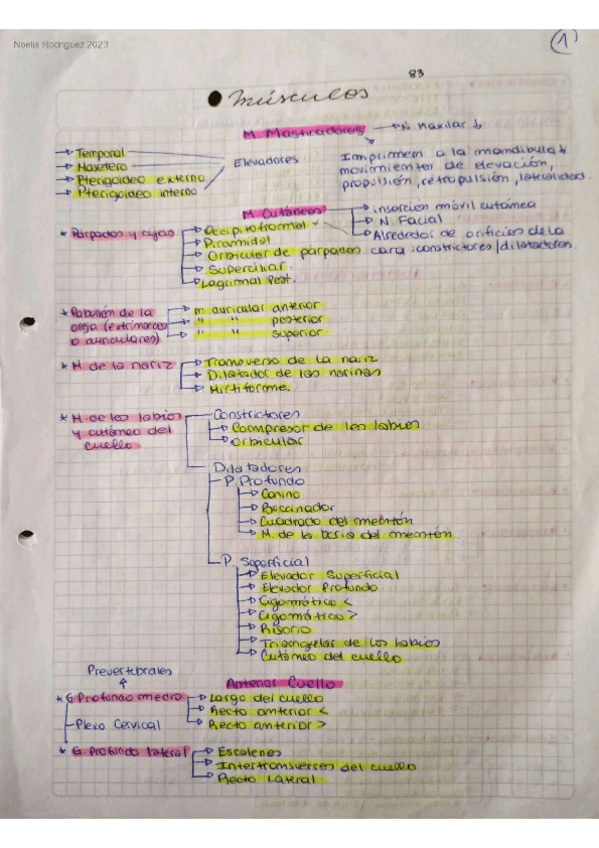 Noelia Rodriguez 2023
1
83
• músculos
M. Masticadores → N. maxilar ↓
Imprimem a la mandibula
movimientor de elevación,
propulsión, retropulsión, lateralidad.
→ Temporal
→ Masetero
→ Pterigoideo externo
→ Pterigoideo interno
Elevadores
M. Cutáneos
→ insercion móvil cutánea
→ N. Facial
→ Alrededor de orificios de la
cara : constrictores | dilatadores.
* Párpados y cejas
→ Occipitofrontal
→ Piramidal
→ Orbicular de párpados
→ Superciliar.
→ Lagrimal Post.
* Pabellón de la
oreja (extrinsecos
o auriculares)
→ m. auricular anterior
→ " " posterior
→ " " superior
* M. de la nariz
→ Transverso de la nariz
→ Dilatador de las narinas
→ Mirtiforme.
* M. de los labios
y cutáneo del
cuello
Constrictores
→ Compresor de los labios
→ Orbicular
Dilatadores
P. Profundo
→ Canino
→ Buccinador
→ Cuadrado del mentón
→ M. de la borla del mentón.
P. Superficial
→ Elevador Superficial
→ Elevador Profundo
→ Cigomático <
→ Cigomático >
→ Risorio
→ Triangular de los labios
→ Cutáneo del cuello
Anterior Cuello
Prevertebrales
* G. Profundo medio
Plexo Cervical
→ Largo del cuello
→ Recto anterior <
→ Recto anterior >
* G. Profundo lateral
→ Escalenes
→ Intertransversos del cuello
→ Recto Lateral